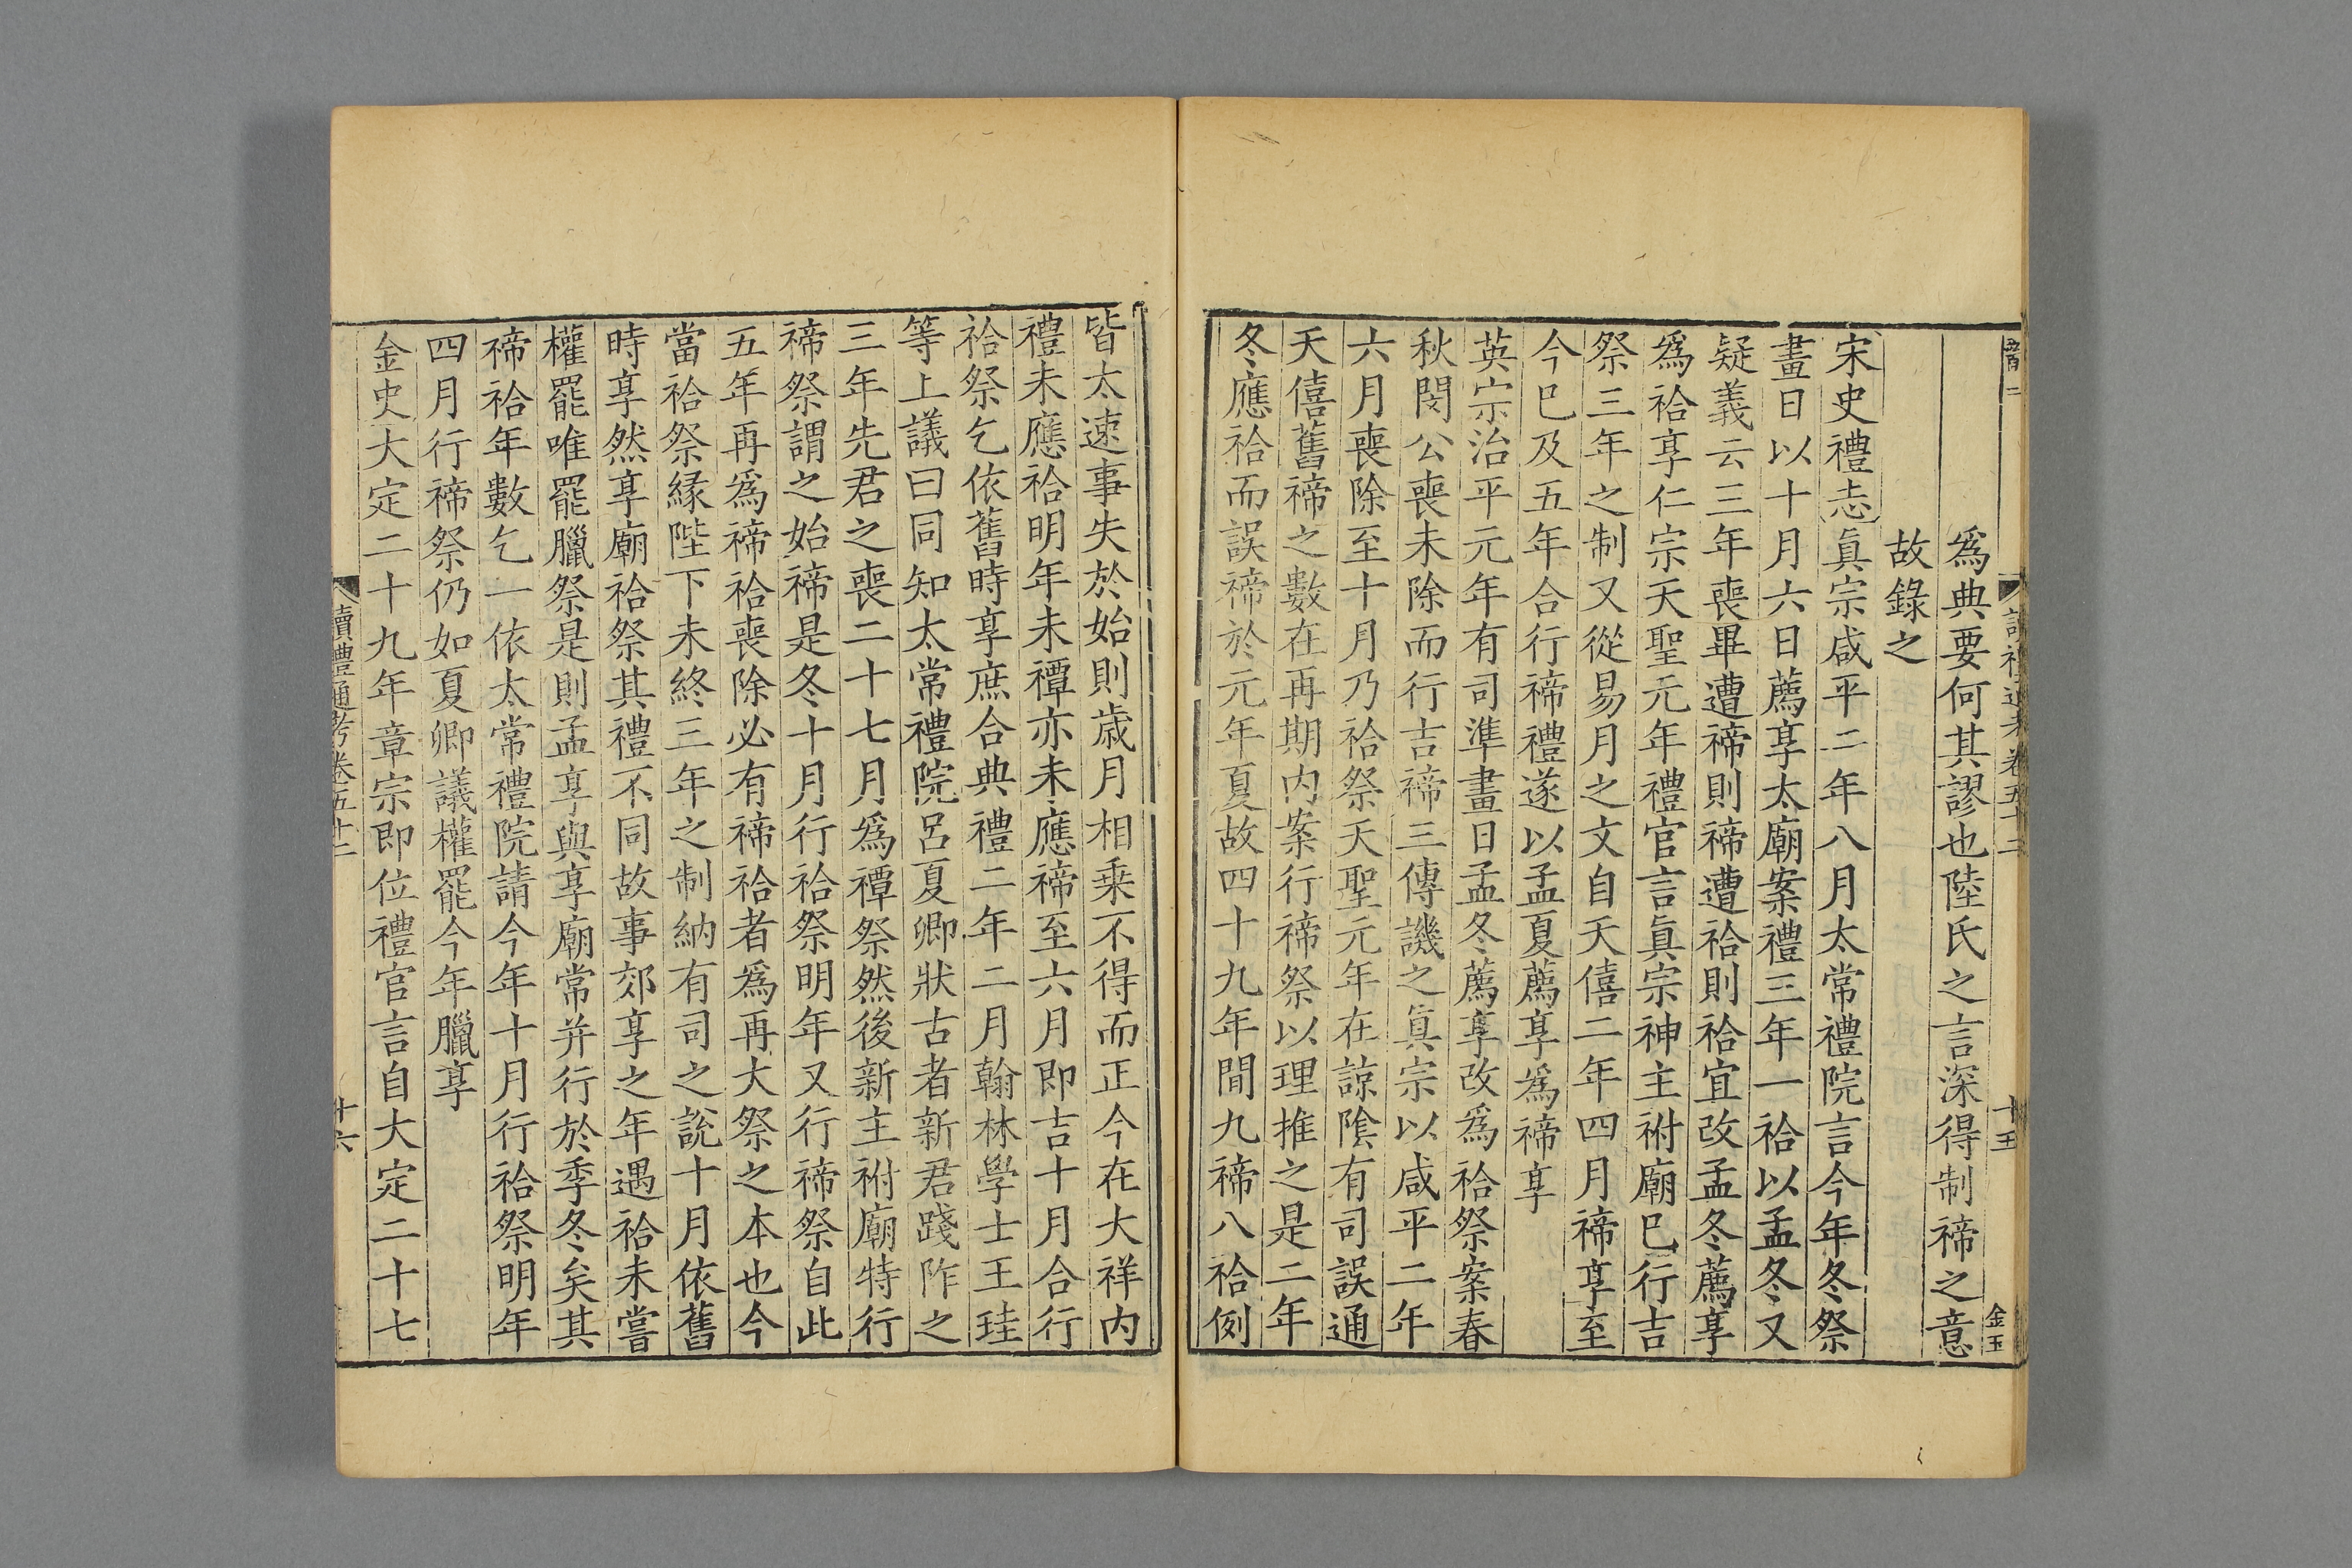 爲典要何其謬也陸氏之言深得制禘之意
故錄之
宋史禮志眞宗咸平二年八月太常禮院言今年冬祭
畫日以十月六日薦享太廟案禮三年一祫以孟冬又
疑義云三年喪畢遭禘則禘遭祫則祫宜改孟冬薦享
爲祫享仁宗天聖元年禮官言眞宗神主祔廟已行吉
祭三年之制又從易月之文自天僖二年四月禘享至
今已及五年合行禘禮遂以孟夏薦享爲禘享
英宗治平元年有司準畫日孟冬薦享改爲祫祭案春
秋閔公喪未除而行吉禘三傳譏之眞宗以咸平二年
六月喪除至十月乃祫祭天聖元年在諒陰有司誤通
天僖舊禘之數在再期內案行禘祭以理推之是二年
冬應祫而誤禘於元年夏故四十九年間九禘八祫例
皆太速事失於始則歲月相乗不得而正今在大祥內
禮未應祫明年未禫亦未應禘至六月即吉十月合行
祫祭乞依舊時享庶合典禮二年二月翰林學士王珪
等上議曰同知太常禮院呂夏卿狀古者新君踐阼之
三年先君之喪二十七月爲禫祭然後新主祔廟特行
禘祭謂之始禘是冬十月行祫祭明年又行禘祭自此
五年再爲禘祫喪除必有禘祫者爲再大祭之本也今
當祫祭緣陛下未終三年之制納有司之說十月依舊
時享然享廟祫祭其禮不同故事郊享之年遇祫未嘗
權罷唯罷臘祭是則孟享與享廟常并行於季冬矣其
禘祫年數乞一依太常禮院請今年十月行祫祭明年
四月行禘祭仍如夏卿議權罷今年臘享
金史大定二十九年章宗即位禮官言自大定二十七
讀禮通考卷五十二
十六
十五
金玉